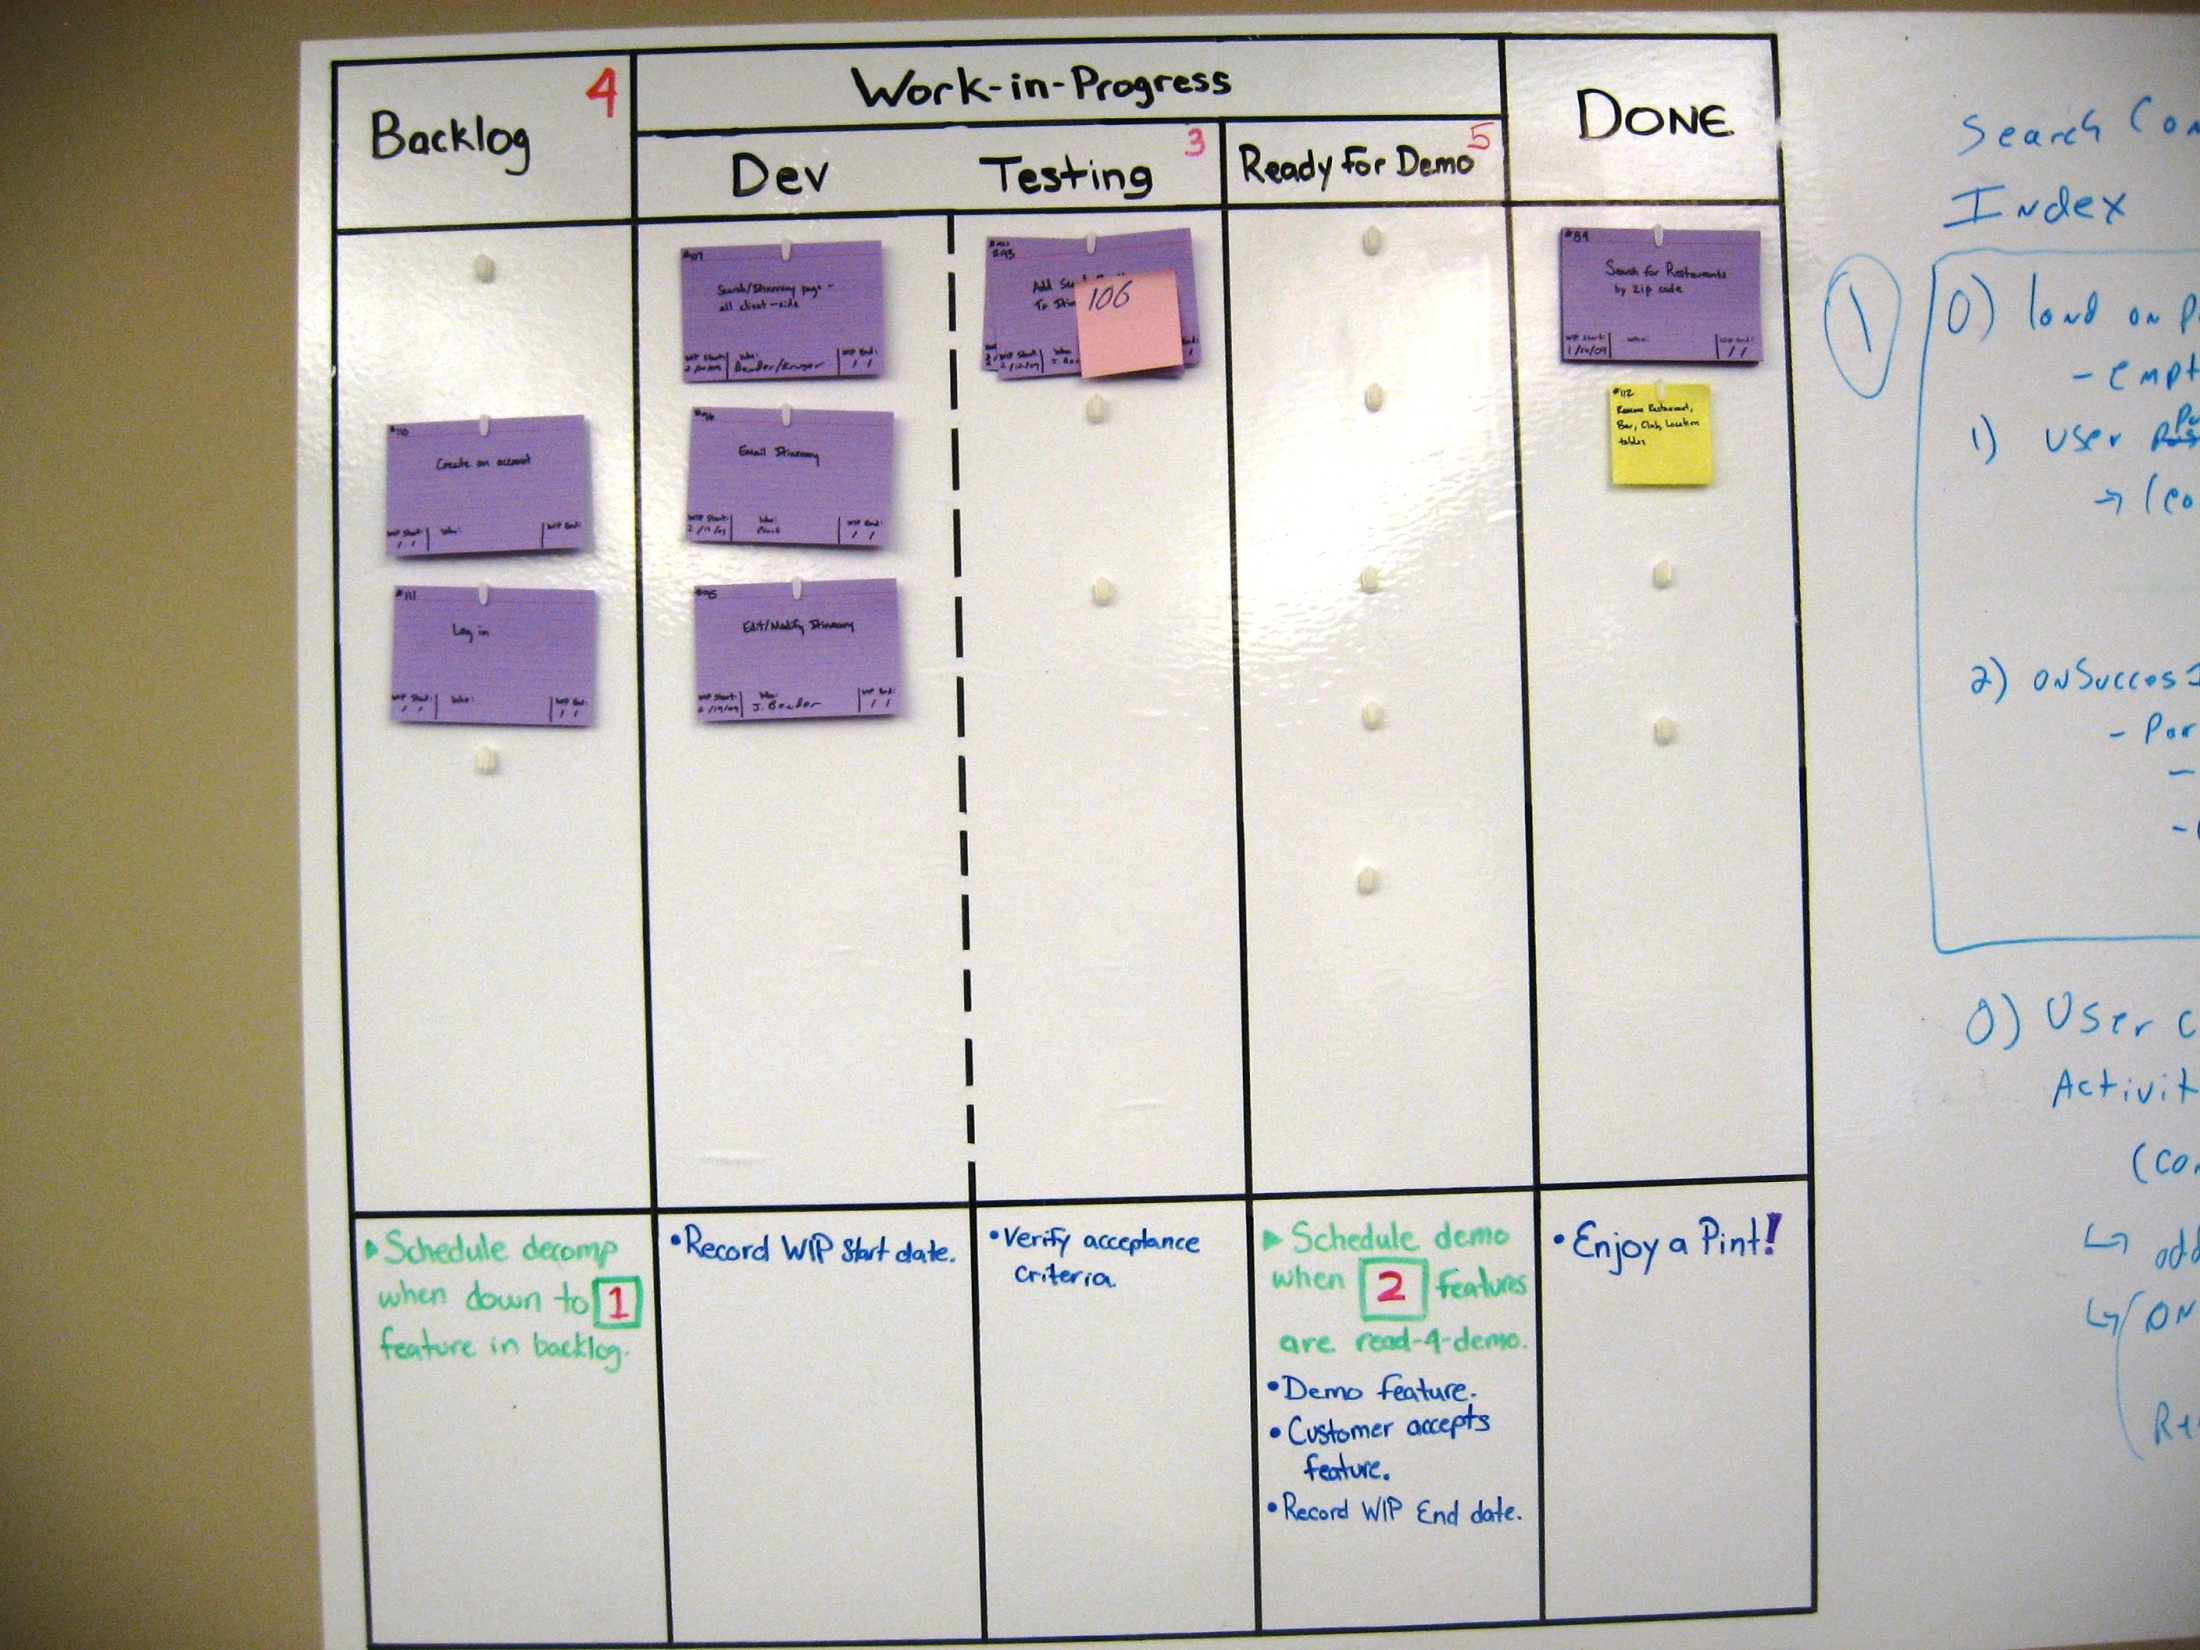 Backlog
4
Work-in-Progress
Dev
Testing
3
Ready for Demo
5
DONE
#110
Create an account
WIP Start:
Who:
WIP End:
/ /
/ /
#111
Log in
WIP Start:
Who:
WIP End:
/ /
/ /
Search/Itinerary page -
all client-side
WIP Start:
Who:
WIP End:
Bender/Kruger
/ /
Email Itinerary
WIP Start:
Who:
WIP End:
/ /
#95
Edit/Modify Itinerary
WIP Start:
Who:
WIP End:
J. Bender
/ /
#93
Add
To
106
WIP Start:
Who:
#84
Search for Restaurants
by zip code
WIP Start:
Who:
WIP End:
/ /
#112
Restaurant,
Bar, Club, Location
tables
Schedule decomp
when down to 1
feature in backlog.
• Record WIP start date.
• Verify acceptance
criteria.
Schedule demo
when 2 features
are read-4-demo.
• Demo feature.
• Customer accepts
feature.
• Record WIP End date.
• Enjoy a Pint!
Search Con
Index
1
0) load on P
- empt
1) user
→ (co
2) onSucces
- Par
0) User c
Activit
(Con
↳ add
↳ (on